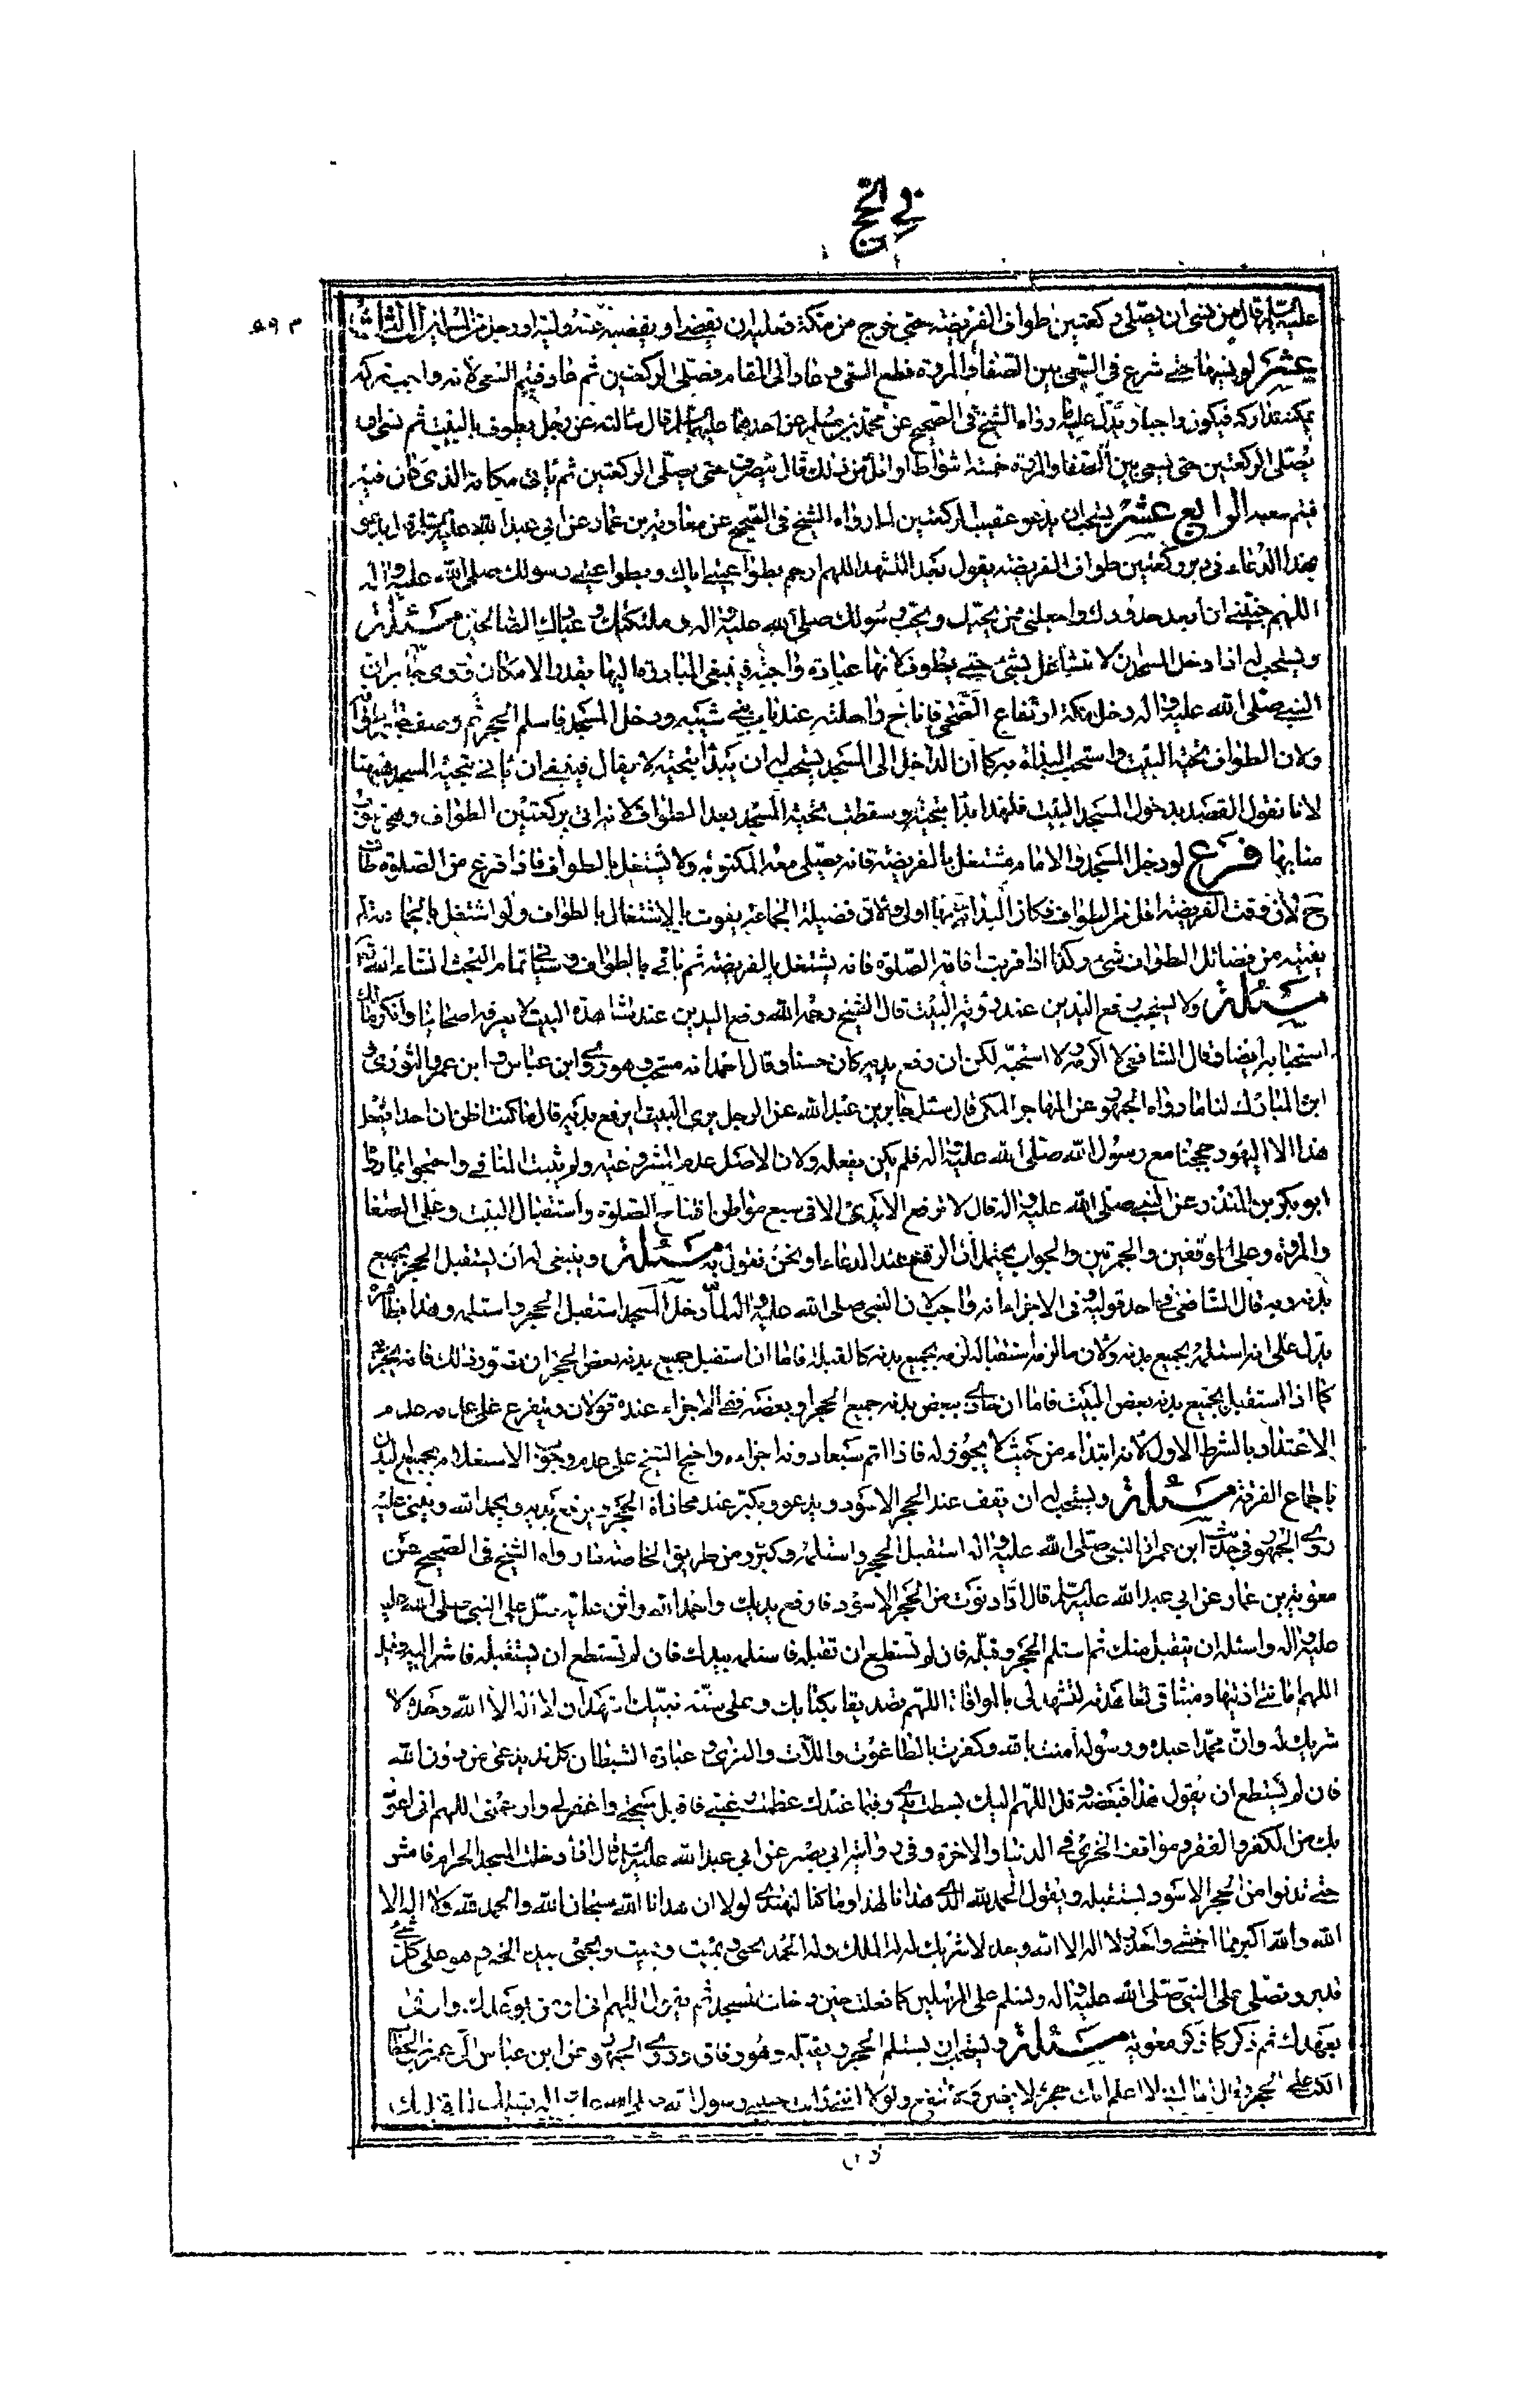 في الحج
٦٩٣
عليه السلم قال من نسى ان يصلى ركعتين طواف الفريضة حتى خرج من مكة فعليه ان يقضى او يقضى عنه وليه او رجل من المسلمين الثالث
عشر لو نسيهما حتى شرع في السعى بين الصفا والمروة قطع السعى وعاد الى المقام فصلى الركعتين ثم عاد فتمم السعى لانه واجب تركه
يمكنه تداركه فيكون واجبا ويدل عليه ما رواه الشيخ في الصحيح عن محمد بن مسلم عن احدهما عليهما السلم قال سالته عن رجل يطوف بالبيت ثم نسى ان
يصلى الركعتين حتى يسعى بين الصفا والمروة خمسة اشواط او اقل من ذلك قال ينصرف حتى يصلى الركعتين ثم ياتى مكانه الذى كان فيه
فيتم سعيه الرابع عشر يستحب ان يدعو عقيب الركعتين لما رواه الشيخ في الصحيح عن معاوية بن عمار عن ابي عبد الله عليه السلم
بهذا الدعاء في دبر ركعتين طواف الفريضة يقول بعد التشهد اللهم ارحم بطواعيتى اياك وبطواعيتى رسولك صلى الله عليه واله
اللهم جنبنى ان اتعد حدودك واجعلنى ممن يحبك ويحب رسولك صلى الله عليه واله وملئكتك وعبادك الصالحين مسئلة
ويستحب له اذا دخل المسجد ان لا يتشاغل بشئ حتى يطوف لانها عبادة واجبة فينبغى المبادرة اليها بقدر الامكان وروى جابر ان
النبى صلى الله عليه واله دخل مكة ارتفاع الضحى فاناخ راحلته عند باب بنى شيبه ودخل المسجد فاستلم الحجر ثم
ولان الطواف تحية البيت واستحب البداة به كما ان الداخل الى المسجد يستحب له ان يبدا بتحيته لا يقال فينبغى ان ياتى بتحية المسجد هيهنا
لانا نقول القصد بدخول المسجد البيت فلهذا بدا بتحيته وسقطت تحية المسجد بعد الطواف لانه اتى بركعتين الطواف
منابها فرع لو دخل المسجد والامام مشتغل بالفريضة فانه يصلى معه المكتوبة ولا يشتغل بالطواف فاذا فرغ من الصلوة طاف
ح لان وقت الفريضة اقل من الطواف فكان البداة بها اولى ولان فضيلة الجماعة يفوت بالاشتغال بالطواف ولو اشتغل بالجماعة لم
يفته من فضائل الطواف شئ وكذا اذا قربت اقامة الصلوة فانه يشتغل بالفريضة ثم ياتى بالطواف وسياتى تمام البحث انشاء الله
مسئلة ولا يستحب رفع اليدين عند رؤية البيت قال الشيخ رحمه الله رفع اليدين عند مشاهدة البيت لا يعرفه اصحابنا وانكر مالك
استحبابه ايضا وقال الشافعى لا اكرهه ولا استحبه لكن ان رفع يديه كان حسنا وقال احمد انه مستحب وهو مروى ابن عباس وابن عمر والثورى
ابن المبارك لنا ما رواه الجمهور عن المهاجر المكى قال سئل جابر بن عبد الله عن الرجل يرى البيت ايرفع يديه قال ما كنت اظن ان احدا يفعل
هذا الا اليهود حججنا مع رسول الله صلى الله عليه واله فلم يكن يفعله ولان الاصل عدم المشروعية ولم يثبت المنافى واحتجوا بما رواه
ابو بكر بن المنذر عن النبى صلى الله عليه واله قال لا ترفع الايدى الا في سبع مواطن افتتاح الصلوة واستقبال البيت وعلى الصفا
والمروة وعلى الموقفين والجمرتين والجواب يحتمل ان الرفع عند الدعاء ونحن نقول به مسئلة وينبغى له ان يستقبل الحجر بجميع
بدنه وبه قال الشافعى في احد قوليه في الاجزاء انه واجب لان النبى صلى الله عليه واله لما دخل المسجد استقبل الحجر واستلمه وهذا ظاهره
يدل على انه استلمه بجميع بدنه ولان ما لزمه استقباله لزمه بجميع بدنه كالقبلة فاما ان استقبل جميع بدنه بعض الحجر ان تصور ذلك فانه يجزئه
كما اذا استقبل بجميع بدنه بعض البيت فاما ان حاذى ببعض بدنه جميع الحجر او بعضه ففى الاجزاء عنده قولان ويتفرع على عدمه عدم
الاعتداد بالشرط الاول لانه ابتداء من حيث لا يجوز له فاذا اتم سبعا دونه اجزاءه واحتج الشيخ على عدم وجوب الاستقبال بجميع البدن
باجماع الفرقة مسئلة ويستحب له ان يقف عند الحجر الاسود ويدعو ويكبر عند محاذاة الحجر ويرفع يديه ويحمد الله ويثنى عليه
روى الجمهور في حديث ابن عمر ان النبى صلى الله عليه واله استقبل الحجر واستلمه وكبر ومن طريق الخاصة ما رواه الشيخ في الصحيح عن
معوية بن عمار عن ابي عبد الله عليه السلم قال اذا دنوت من الحجر الاسود فارفع يديك واحمد الله واثن عليه وصل على النبى صلى الله عليه
عليه واله واسئله ان يتقبل منك ثم استلم الحجر وقبله فان لم تستطع ان تقبله فاستلمه بيدك فان لم تستطع ان تستقبله فاشر اليه وقل
اللهم امانتى اديتها وميثاقى تعاهدته لتشهد لى بالموافاة اللهم تصديقا بكتابك وعلى سنة نبيك اشهد ان لا اله الا الله وحده لا
شريك له وان محمدا عبده ورسوله امنت بالله وكفرت بالطاغوت واللات والعزى وعبادة الشيطان كل ند يدعى من دون الله
فان لم تستطع ان تقول هذا فبعضه وقل اللهم اليك بسطت يدى وفيما عندك عظمت رغبتى فاقبل سبحتى واغفر لى وارحمنى اللهم انى اعوذ
بك من الكفر والفقر ومواقف الخزى في الدنيا والاخرة وفي رواية ابي بصير عن ابي عبد الله عليه السلم قال اذا دخلت المسجد الحرام فامش
حتى تدنوا من الحجر الاسود تستقبله وتقول الحمد لله الذى هدانا لهذا وما كنا لنهتدى لولا ان هدانا الله سبحان الله والحمد لله ولا اله الا
الله والله اكبر مما اخشى واحذر لا اله الا الله وحده لا شريك له له الملك وله الحمد يحيى ويميت ويميت ويحيى بيده الخير وهو على كل شئ
قدير وتصلى على النبى صلى الله عليه واله وتسلم على المرسلين كما فعلت حين دخلت المسجد ثم تقول اللهم انى اومن بوعدك واوفى
بعهدك ثم ذكر كما ذكر معوية مسئلة ويستحب ان يستلم الحجر ويقبله وهو وفاق وروى الجمهور عن ابن عباس ان عمر بن الخطاب
انكب على الحجر وقال اما انى لا اعلم انك حجر لا تضر ولا تنفع ولولا انى رايت حبيبى رسول الله صلى الله عليه واله